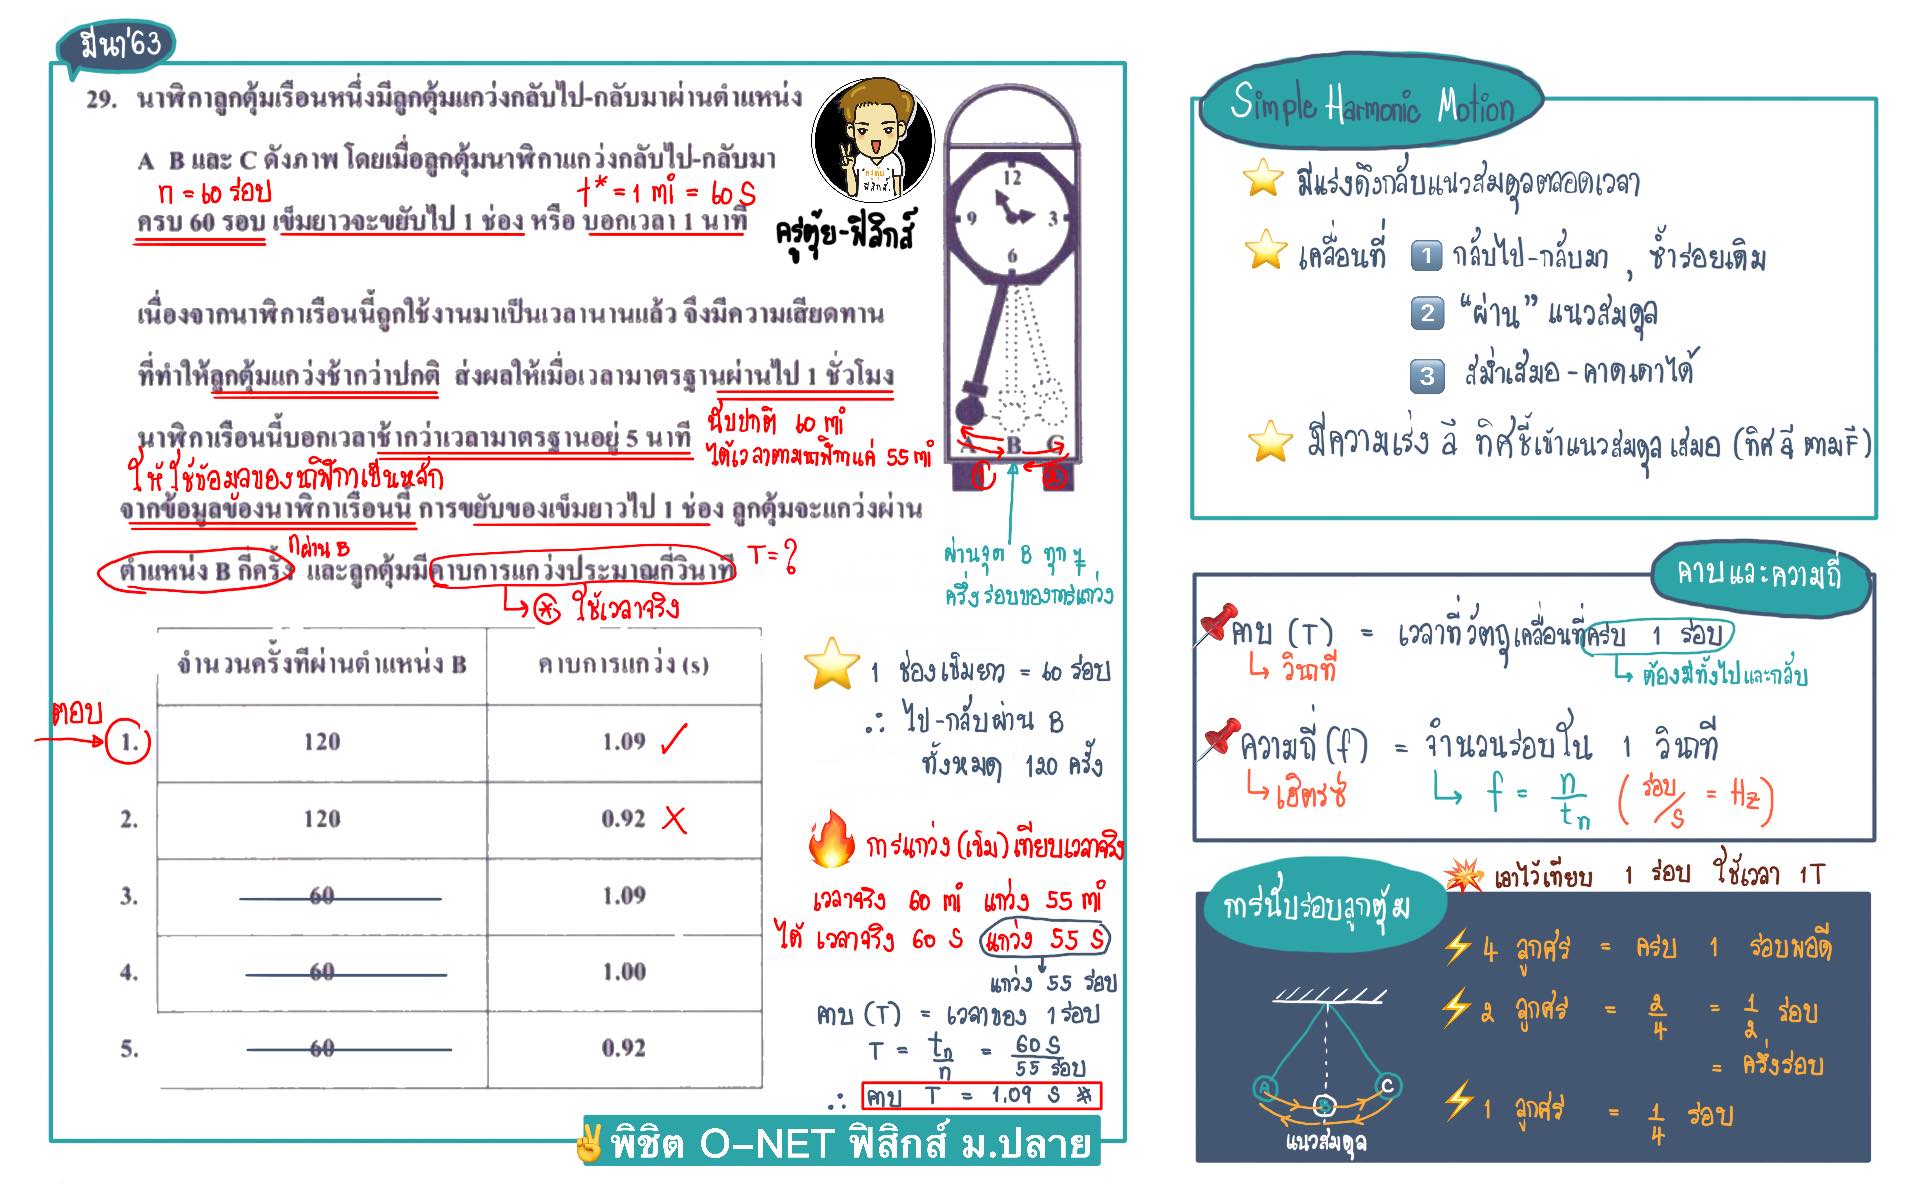 มีนา'63
29. นาฬิกาลูกตุ้มเรือนหนึ่งมีลูกตุ้มแกว่งกลับไป-กลับมาผ่านตำแหน่ง
A B และ C ดังภาพ โดยเมื่อลูกตุ้มนาฬิกาแกว่งกลับไป-กลับมา
n = 60 รอบ t* = 1 mi = 60 S
ครบ 60 รอบ เข็มยาวจะขยับไป 1 ช่อง หรือ บอกเวลา 1 นาที
ครูตุ้ย-ฟิสิกส์
เนื่องจากนาฬิกาเรือนนี้ถูกใช้งานมาเป็นเวลานานแล้ว จึงมีความเสียดทาน
ที่ทำให้ลูกตุ้มแกว่งช้ากว่าปกติ ส่งผลให้เมื่อเวลามาตรฐานผ่านไป 1 ชั่วโมง
นาฬิกาเรือนนี้บอกเวลาช้ากว่าเวลามาตรฐานอยู่ 5 นาที
นับปกติ 60 mi
ได้เวลาตามนาฬิกาแค่ 55 mi
ให้ใช้ข้อมูลของนาฬิกาเป็นหลัก
จากข้อมูลของนาฬิกาเรือนนี้ การขยับของเข็มยาวไป 1 ช่อง ลูกตุ้มจะแกว่งผ่าน
nผ่าน B
ตำแหน่ง B กี่ครั้ง และลูกตุ้มมีคาบการแกว่งประมาณกี่วินาที T = ?
ใช้เวลาจริง
12
9 3
6
A B C
ผ่านจุด B ทุก ๆ
ครึ่งรอบของการแกว่ง
จำนวนครั้งที่ผ่านตำแหน่ง B คาบการแกว่ง (s)
ตอบ
1. 120 1.09 ✓
2. 120 0.92 X
3. 60 1.09
4. 60 1.00
5. 60 0.92
1 ช่องเข็มยาว = 60 รอบ
∴ ไป-กลับผ่าน B
ทั้งหมด 120 ครั้ง
การแกว่ง (เข็ม) เทียบเวลาจริง
เวลาจริง 60 mi แกว่ง 55 mi
ได้ เวลาจริง 60 S แกว่ง 55 S
แกว่ง 55 รอบ
คาบ (T) = เวลาของ 1 รอบ
T = tn/n = 60 S/55 รอบ
∴ คาบ T = 1.09 S *
พิชิต O-NET ฟิสิกส์ ม.ปลาย
Simple Harmonic Motion
มีแรงดึงกลับแนวสมดุลตลอดเวลา
เคลื่อนที่ 1 กลับไป-กลับมา , ซ้ำรอยเดิม
2 "ผ่าน" แนวสมดุล
3 สม่ำเสมอ - คาดเดาได้
มีความเร่ง a⃗ ทิศชี้เข้าแนวสมดุลเสมอ (ทิศ a⃗ ตาม F⃗)
คาบและความถี่
คาบ (T) = เวลาที่วัตถุเคลื่อนที่ครบ 1 รอบ
วินาที
ต้องมีทั้งไปและกลับ
ความถี่ (f) = จำนวนรอบใน 1 วินาที
เฮิตรซ์
f = n/tn (รอบ/S = Hz)
เอาไว้เทียบ 1 รอบ ใช้เวลา 1T
การนับรอบลูกตุ้ม
4 ลูกศร = ครบ 1 รอบพอดี
2 ลูกศร = 2/4 = 1/2 รอบ
= ครึ่งรอบ
1 ลูกศร = 1/4 รอบ
A B C
แนวสมดุล